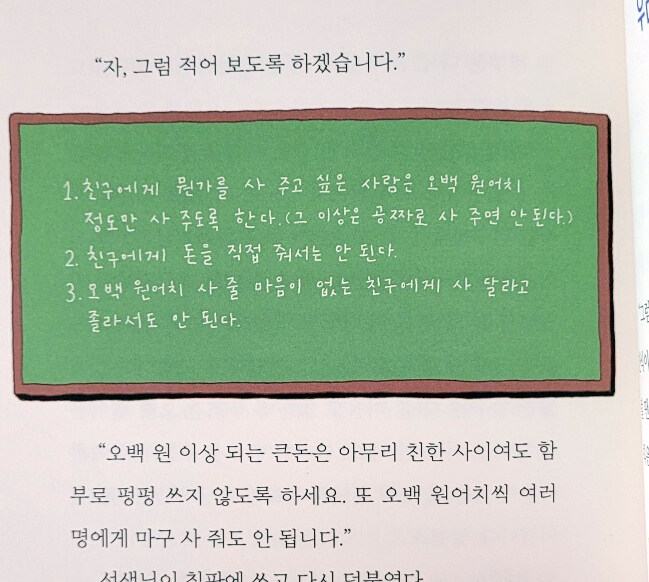 “자, 그럼 적어 보도록 하겠습니다.”
1. 친구에게 뭔가를 사 주고 싶은 사람은 오백 원어치
정도만 사 주도록 한다.(그 이상은 공짜로 사 주면 안 된다.)
2. 친구에게 돈을 직접 줘서는 안 된다.
3. 오백 원어치 사 줄 마음이 없는 친구에게 사 달라고
졸라서도 안 된다.
“오백 원 이상 되는 큰돈은 아무리 친한 사이여도 함
부로 펑펑 쓰지 않도록 하세요. 또 오백 원어치씩 여러
명에게 마구 사 줘도 안 됩니다.”
선생님이 칠판에 쓰고 다시 덧붙였다.